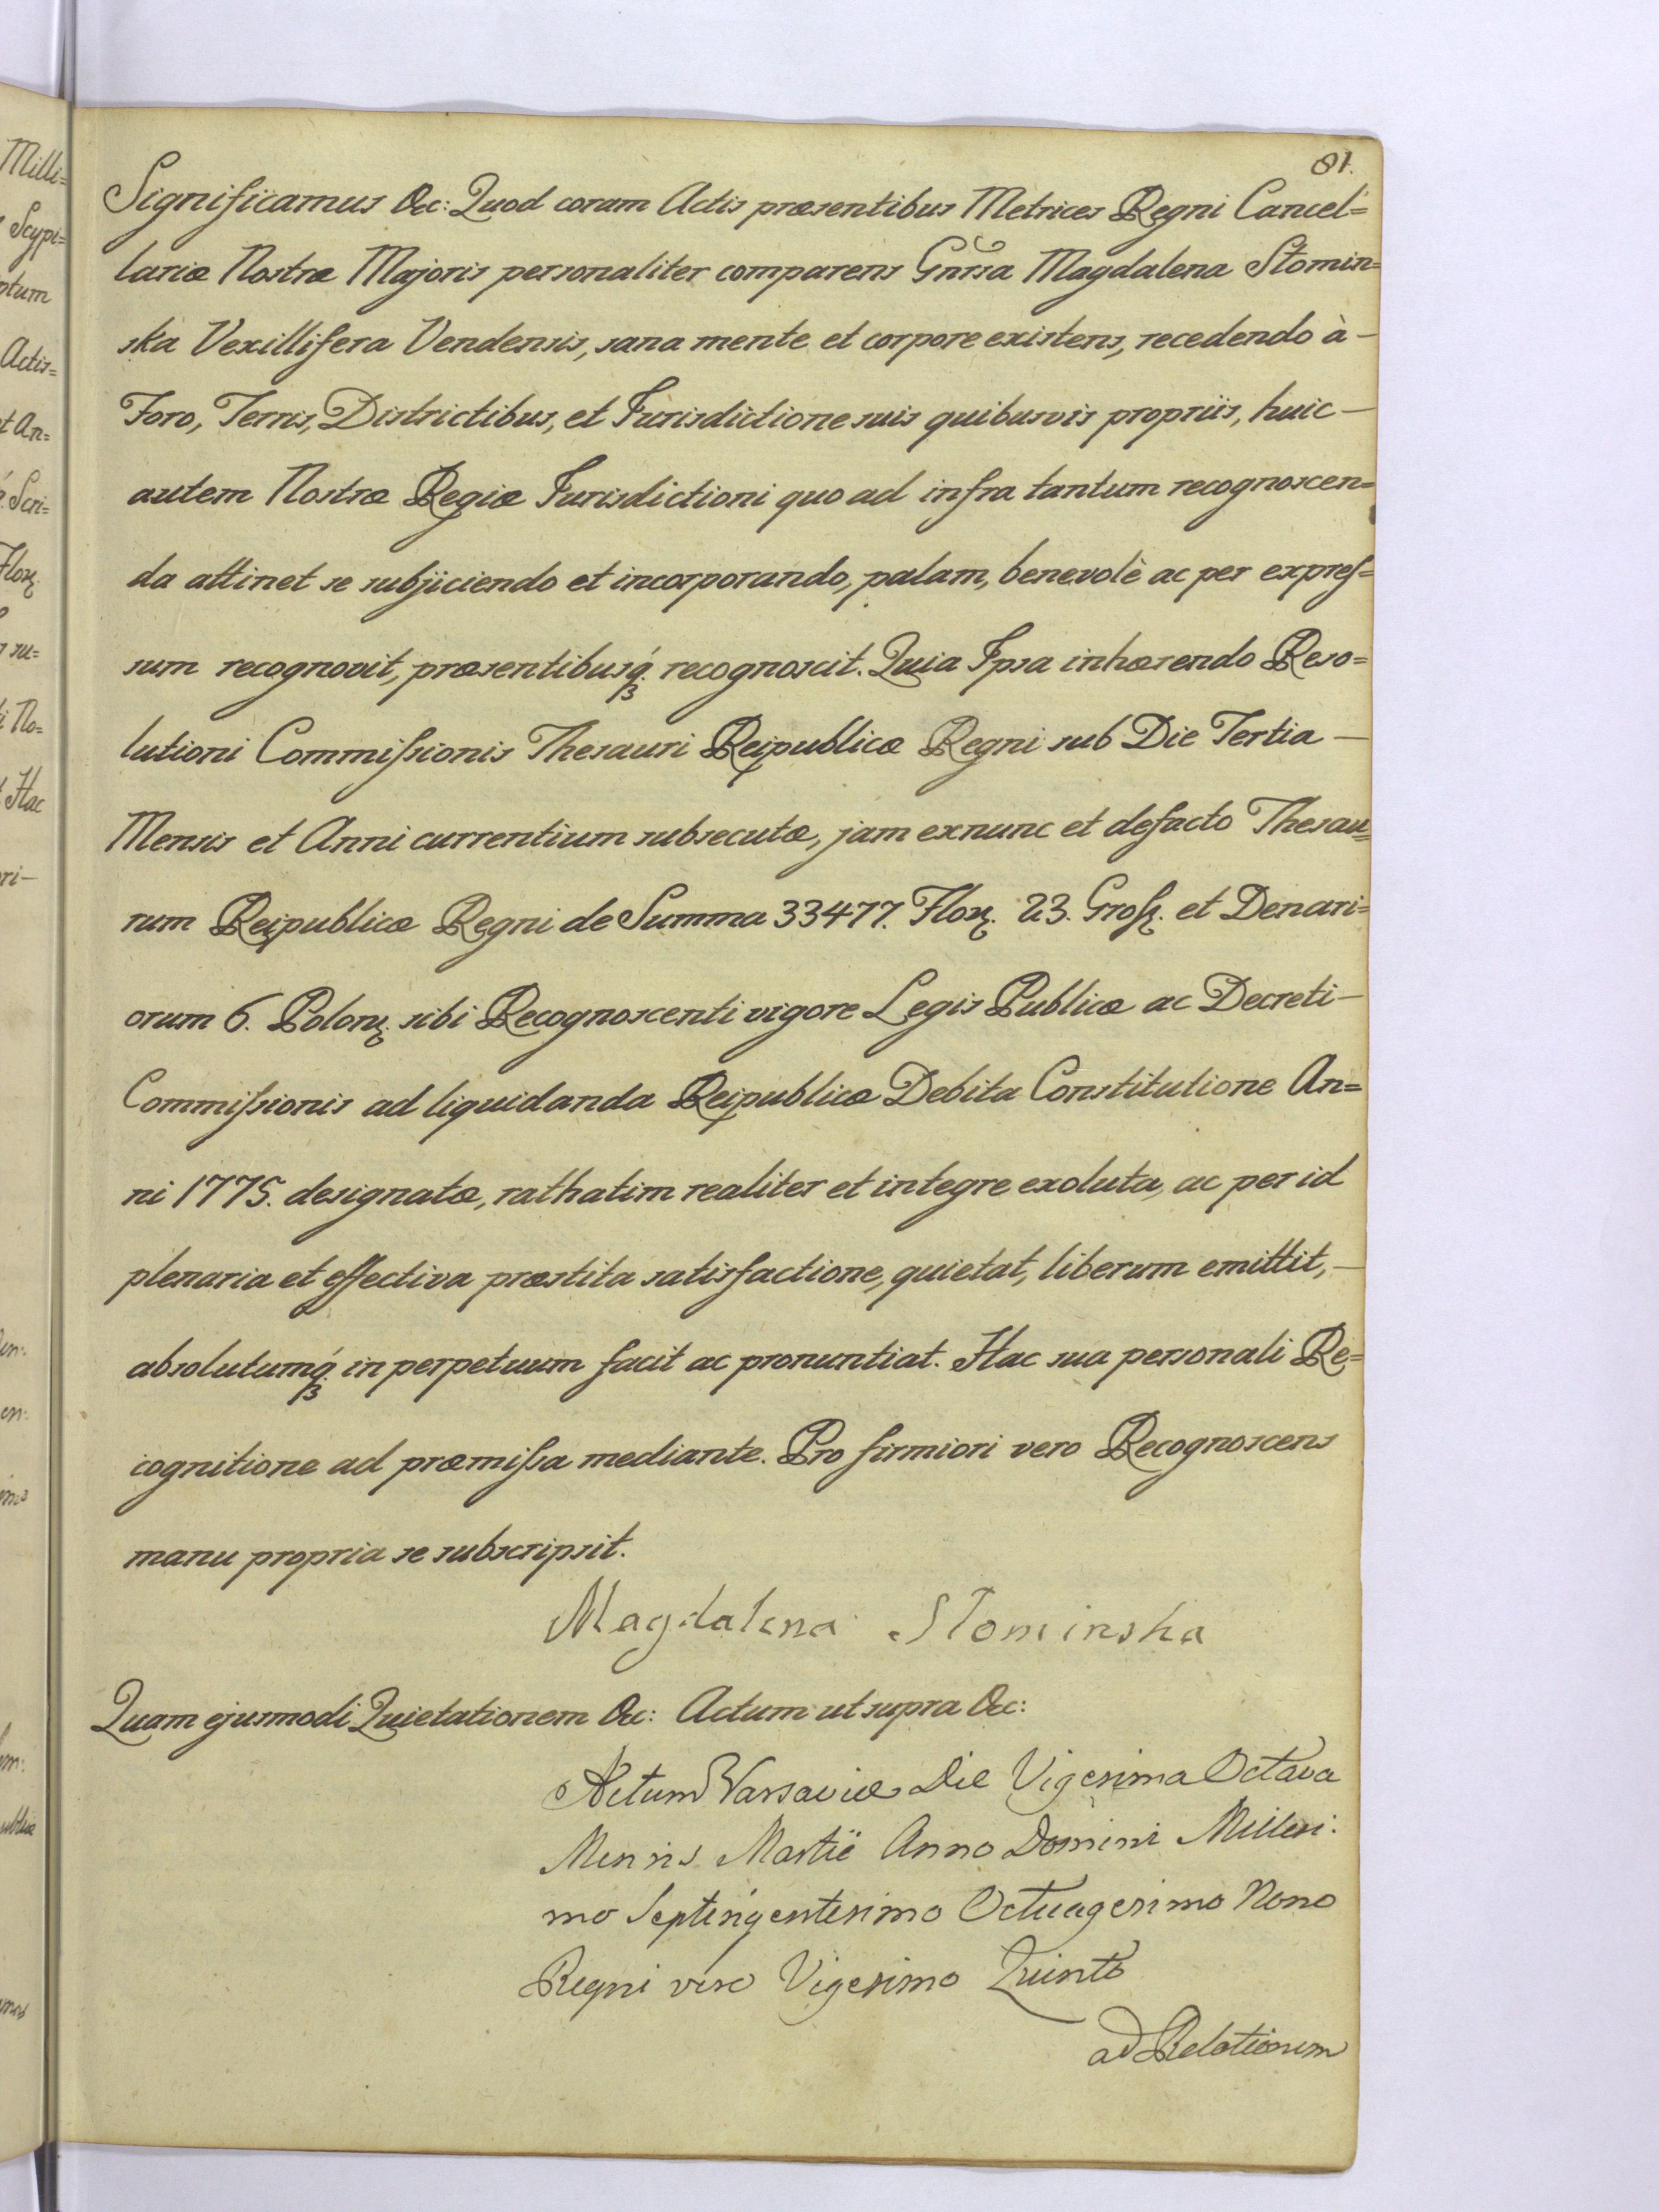 81.
Significamus &c: Quod coram Actis præsentibus Metrices Regni Cancel=
lariæ Nostræ Majoris personaliter comparens Gnrsa Magdalena Stomin=
ska Vexillifera Vendensis, sana mente et corpore existens, recedendo à —
Foro, Terris, Districtibus, et Jurisdictione suis quibusvis propriis, huic —
autem Nostræ Regiæ Jurisdictioni quo ad infra tantum recognoscen=
da attinet se subjiciendo et incorporando, palam, benevolè ac per expreſ=
sum recognovit, præsentibusq́ꝫ recognoscit. Quia Ipsa inhærendo Reso=
lutioni Commiſsionis Thesauri Reipublicæ Regni sub Die Tertia —
Mensis et Anni currentium subsecutæ, jam exnunc et defacto Thesau=
rum Reipublicæ Regni de Summa 33477. Floꝝ. 23. Groſꝝ. et Denari=
orum 6. Polonꝝ sibi Recognoscenti vigore Legis Publicæ ac Decreti —
Commiſsionis ad liquidanda Reipublicæ Debita Constitutione An=
ni 1775. designatæ, rathatim realiter et integre exoluta, ac per id
plenaria et effectiva præstita satisfactione, quietat, liberum emittit, —
absolutumq́ꝫ in perpetuum facit ac pronuntiat. Hac sua personali Re=
cognitione ad præmiſsa mediante. Pro firmiori vero Recognoscens
manu propria se subscripsit.
Magdalena Stominska
Quam ejusmodi Quietationem &c: Actum ut supra &c:
Actum Varsaviæ Die Vigesima Octava
Mensis Martii Anno Domini Millesi:
mo Septingentesimo Octuagesimo Nono
Regni vero Vigesimo Quinto
ad Relationem